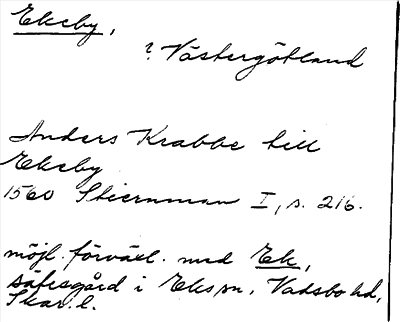 Ekeby,
? Västergötland
Anders Krabbe till
Ekeby
1560 Stiernman I, s. 216.
möjl. förväxl. med Ek,
säfesgård i Eks sn, Vadsbo hd,
Skar. l.